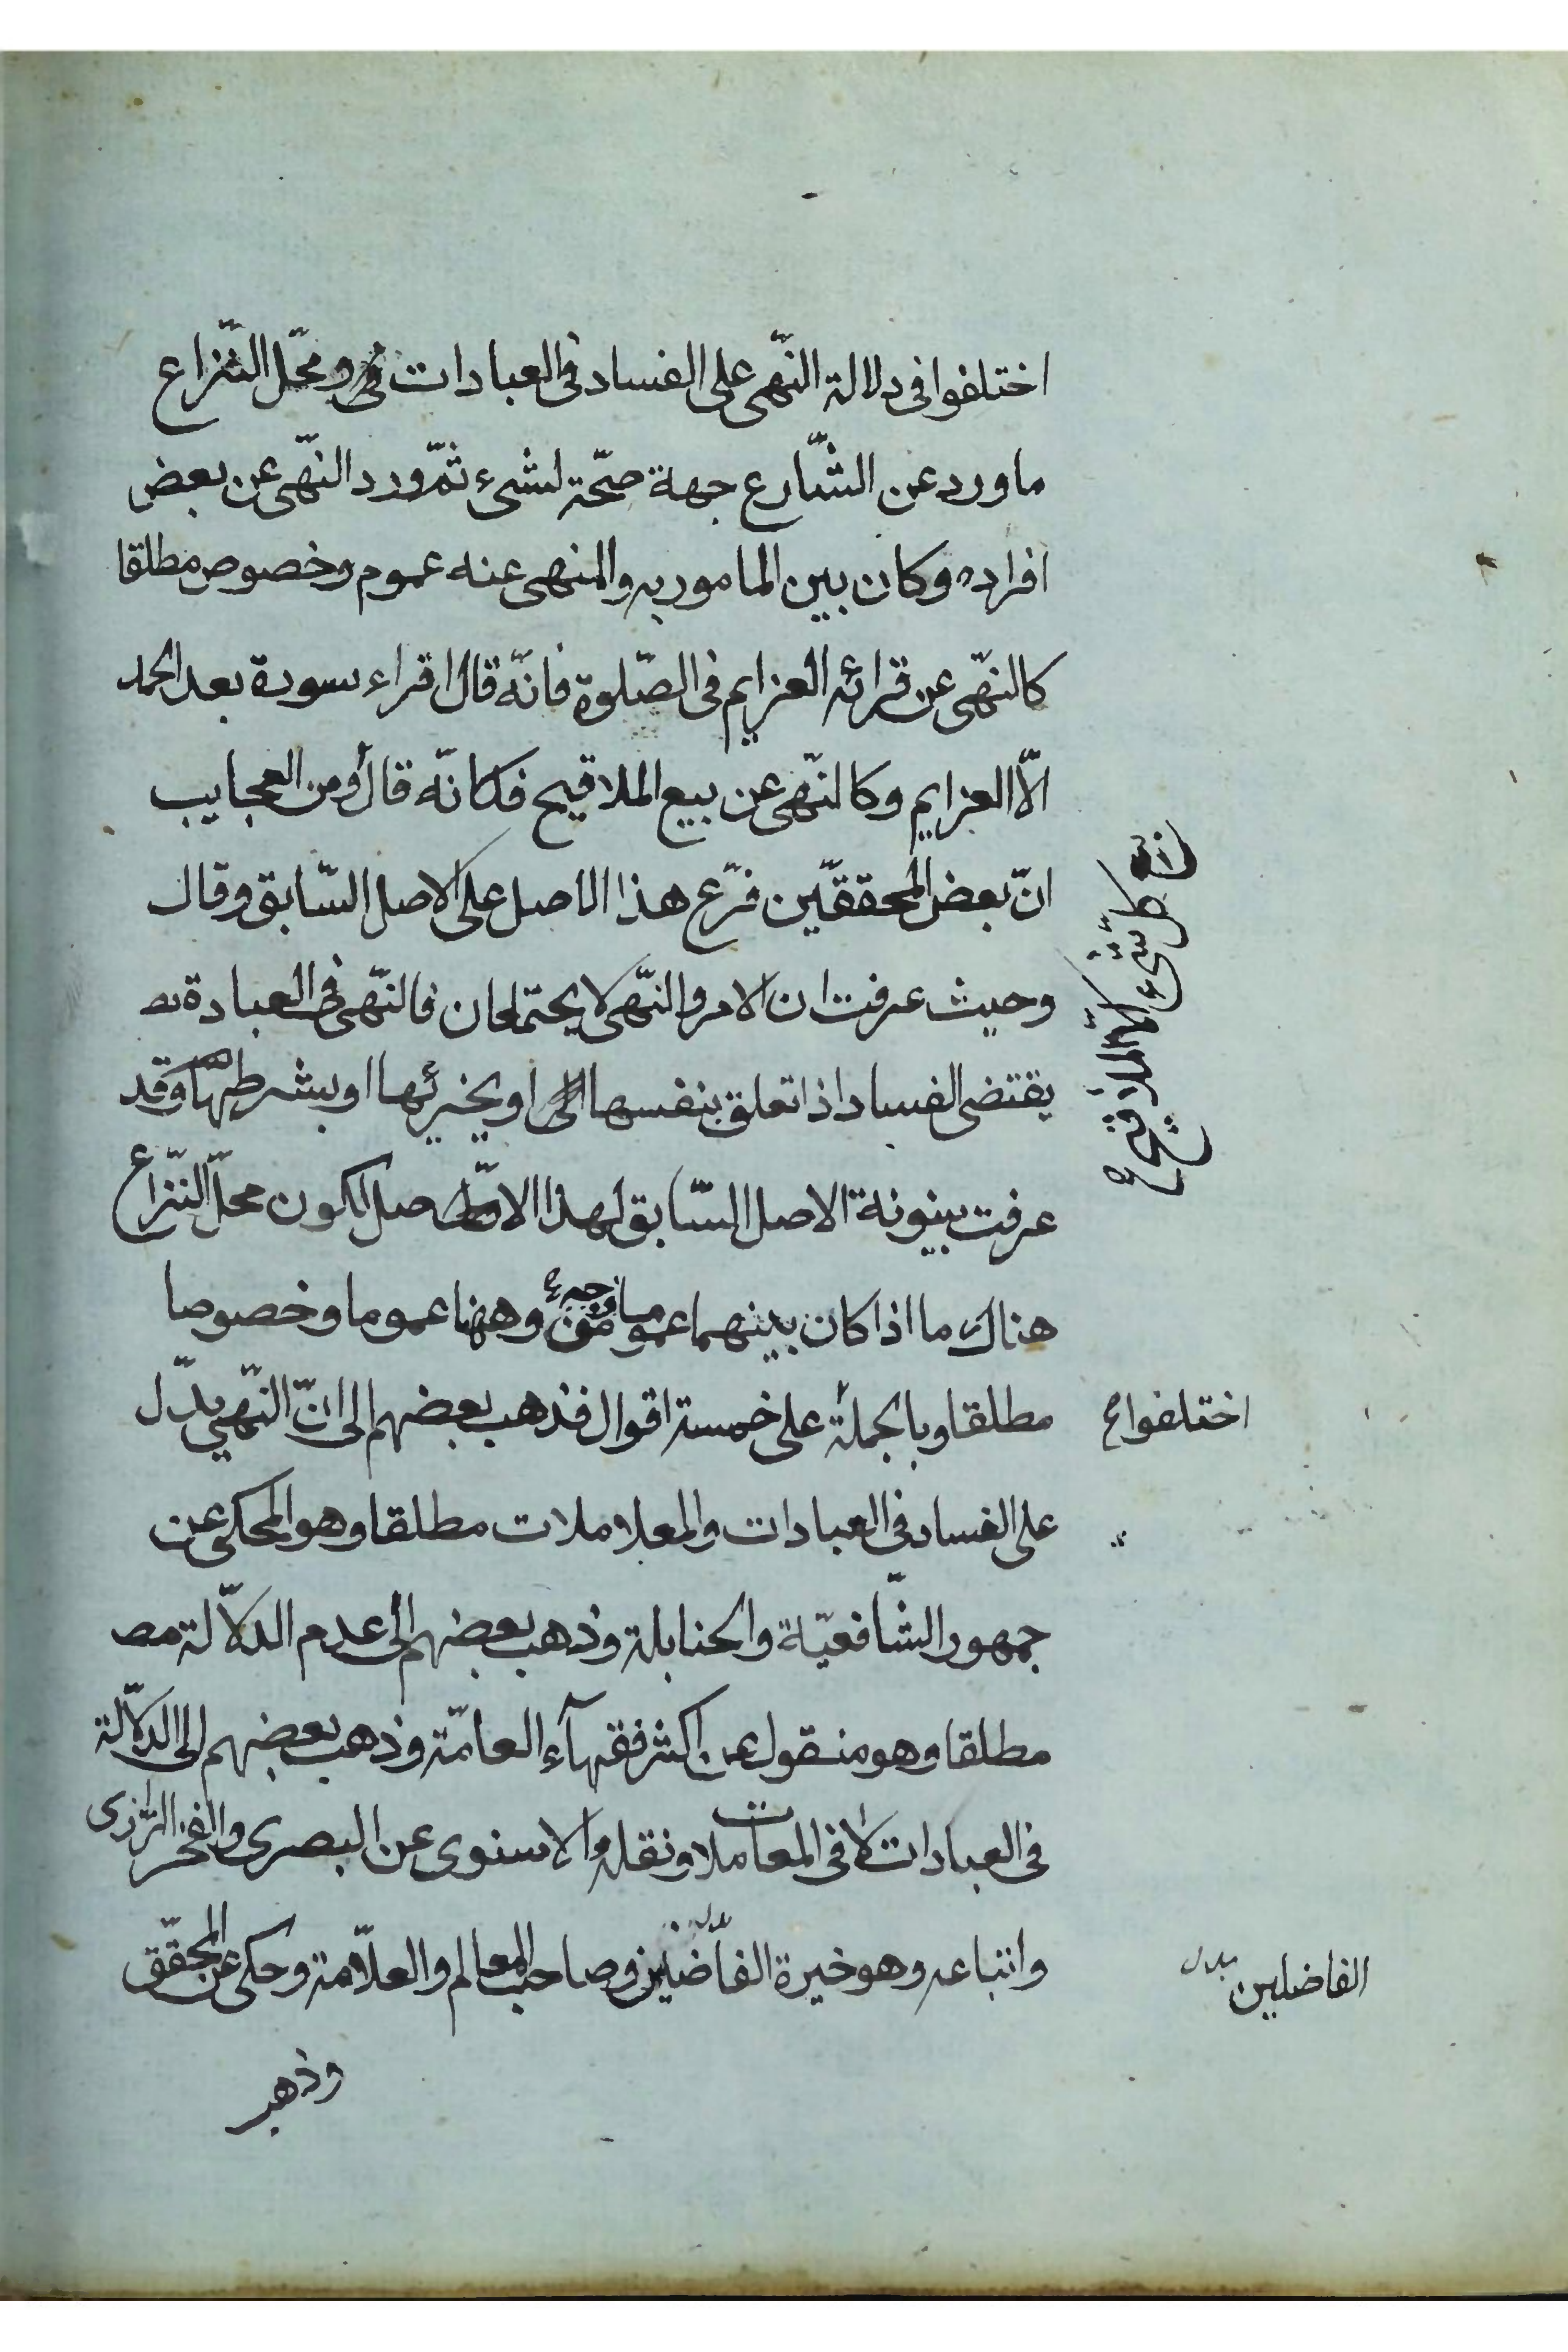 اختلفوا فى دلالة النّهى على الفساد فى العبادات ومحّل النّزاع
ما ورد عن الشّارع جهة صحّة لشىء ثمّ ورد النّهى عن بعض
افراده وكان بين المامور به والمنهى عنه عموم وخصوص مطلقا
كالنّهى عن قرائه العزايم فى الصّلوة فانّه قال اقراء سورة بعد الحمد
الّا العزايم وكالنّهى عن بيع الملاقيح فكانّه قال ومن العجايب
بع كلّ شىء الّا الملاقيح
انّ بعض المحققّين فرّع هذا الاصل على الاصل السّابق وقال
وحيث عرفت ان الامر والنّهى لا يحتمعان فالنّهى فى العبادة
يقتضى الفساد اذا تعلق بنفسها او بجزئها او بشرطها وقد
عرفت بينونة الاصل السّابق لهذا الاصل لكون محلّ النّزاع
هناك ما اذا كان بينهما عموما من وجه وههنا عموما وخصوصا
مطلقا وبالجملة على خمسة اقوال فذهب بعضهم الى انّ النّهى يدّل
اختلفوا
على الفساد فى العبادات والمعاملات مطلقا وهو المحكى عن
جمهور الشّافعيّة والحنابلة وذهب بعضهم الى عدم الدلّالة
مطلقا وهو منقول عن اكثر فقهآء العامّة وذهب بعضهم الى الدلّالة
فى العبادات لا فى المعاملات ونقله الاسنوى عن البصرى والفخر الرّازى
واتباعه وهو خيرة الفاضلين وصاحب المعالم والعلّامة وحكى عن المحقّق
الفاضلين بدل
وذهب